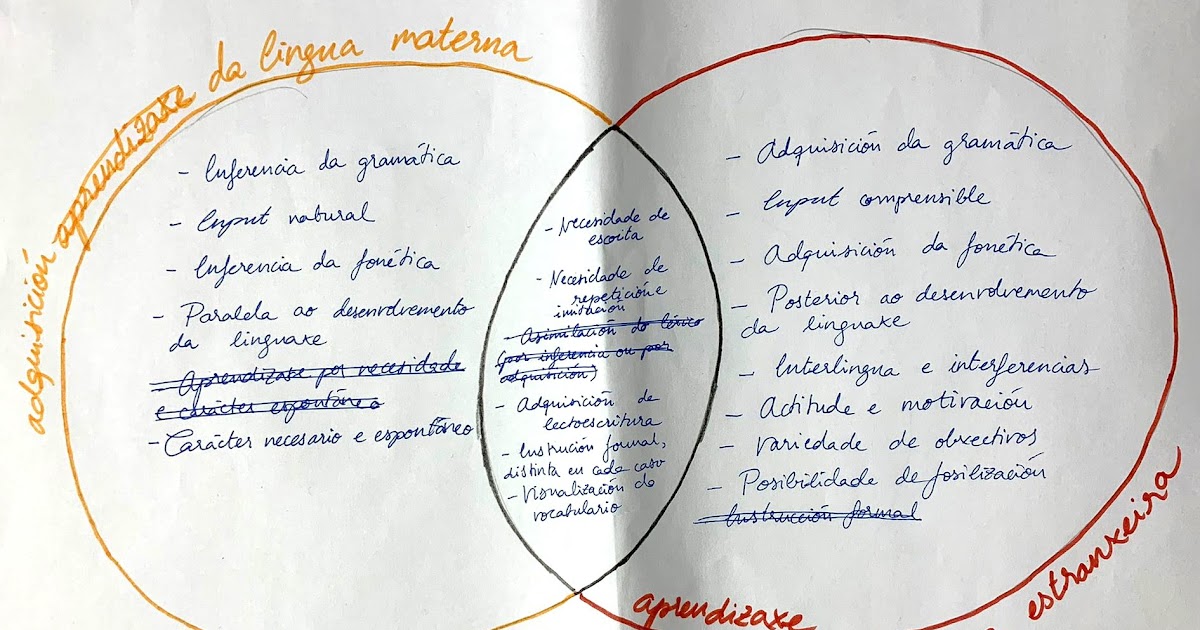 adquisición aprendizaxe da lingua materna
- Inferencia da gramática
- Input natural
- Inferencia da fonética
- Paralela ao desenvolvemento
da linguaxe
- Aprendizaxe por necesidade
e carácter espontáneo
- Carácter necesario e espontáneo
- Necesidade de
escoita
- Necesidade de
repetición e
imitación
- Asimilación do léxico
(por inferencia ou por
adquisición)
- Adquisición de
lectoescritura
- Instrución formal,
distinta en cada caso
- Visualización do
vocabulario
- Adquisición da gramática
- Input comprensible
- Adquisición da fonética
- Posterior ao desenvolvemento
da linguaxe
- Interlingua e interferencias
- Actitude e motivación
- Variedade de obxectivos
- Posibilidade de fosilización
- Instrucción formal
aprendizaxe
estranxeira